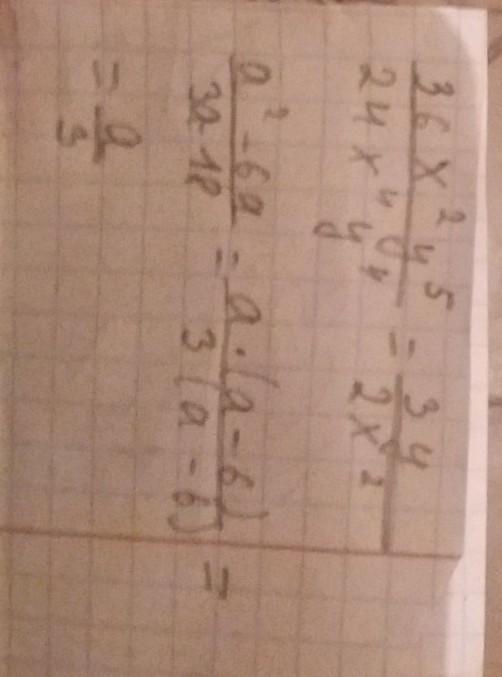 36x²y⁵ / 24x⁴y⁴ = 3y / 2x²
a²-6a / 3a-18 = a·(a-6) / 3(a-6) =
= a / 3